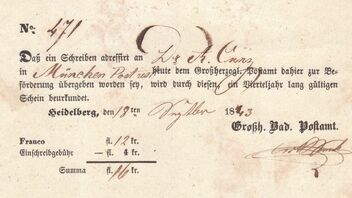 No. 471
Daß ein Schreiben addressirt an Dr. A.
in München Post rest heute dem Großherzogl. Postamt dahier zur Be-
förderung übergeben worden sey, wird durch diesen, ein Vierteljahr lang gültigen
Schein beurkundet.
Heidelberg, den 18ten 1843
Großh. Bad. Postamt.
Franco fl. 12 kr.
Einschreibgebühr — fl. 4 kr.
Summa fl. 16 kr.